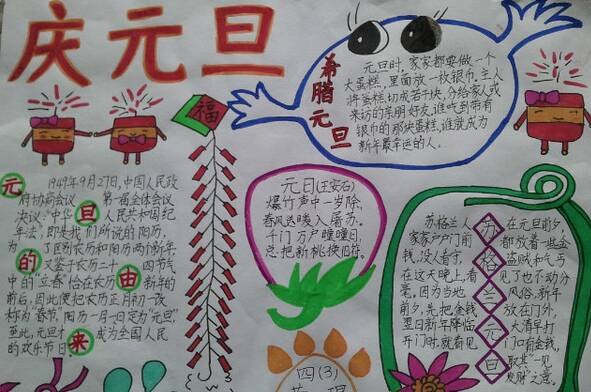 庆元旦
福
希腊元旦
元旦时,家家都要做一个
大蛋糕,里面放一枚银币,主人
将蛋糕切成若干块,分给家人或
来访的亲朋好友,谁吃到带有
银币的那块蛋糕,谁就成为
新年最幸运的人。
元旦的由来
1949年9月27日,中国人民政
府协商会议 第一届全体会议
决议:“中华 人民共和国纪
年法”,即是我们所说的阳历。
为了区别农历和阳历两个新年,
又鉴于农历二十 四节气
中的“立春”恰在农历 新年的
前后,因此便把农历正月初一改
称为“春节”,阳历一月一日定为“元旦”,
至此,元旦才 成为全国人民
的欢乐节日
元日(王安石)
爆竹声中一岁除,
春风送暖入屠苏。
千门万户曈曈日,
总把新桃换旧符。
苏格兰元旦
苏格兰人
家家户户门前
钱,没人看守,
在这天晚上,看
毫。因为当地
前夕,先把金钱
翌日新年降临
开门时,就看见
在元旦前夕,
都放着一些金
盗贼和乞丐
见了也不动分
风俗,新年
放在门外,
大清早打
门口有金钱,
取其“一见
发财”之意。
四(3)